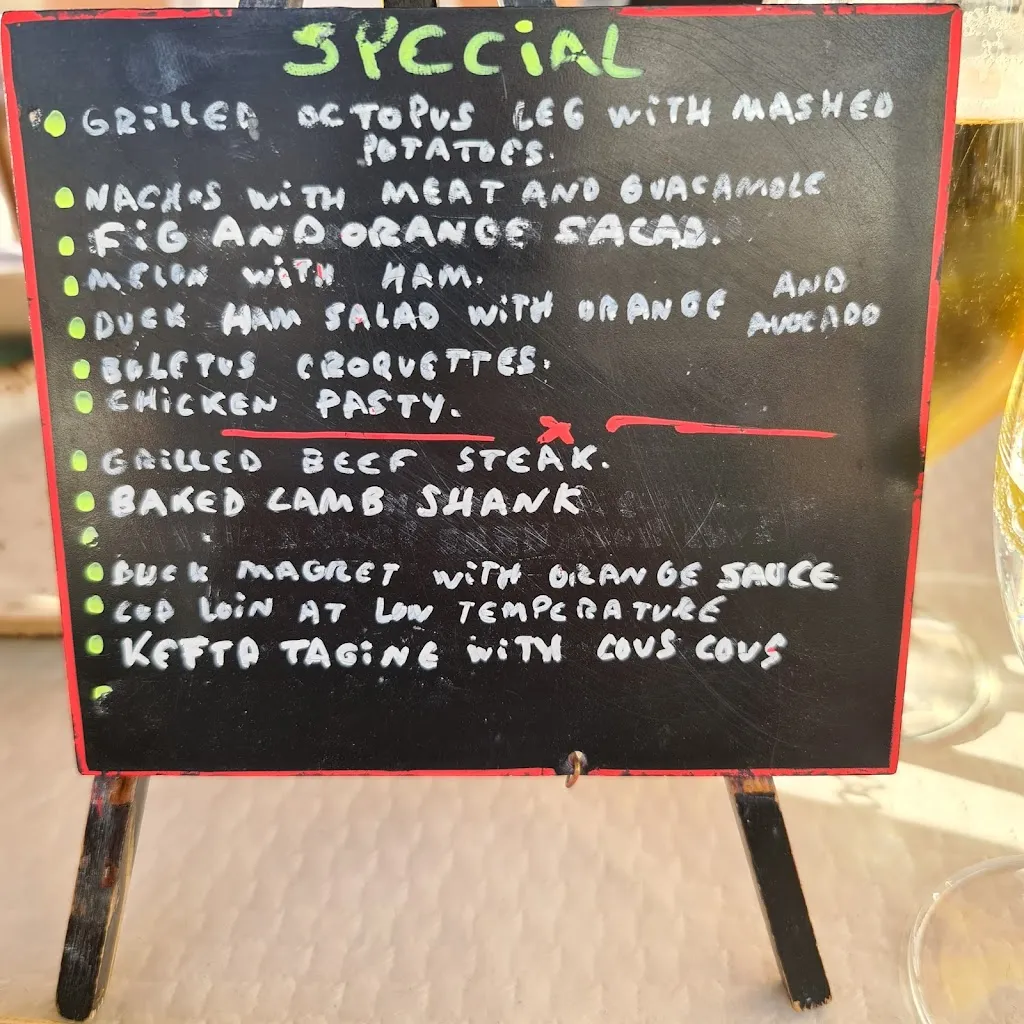 SPECIAL
GRILLED OCTOPUS LEG WITH MASHED
POTATOES.
NACHOS WITH MEAT AND GUACAMOLE
FIG AND ORANGE SALAD.
MELON WITH HAM.
DUCK HAM SALAD WITH ORANGE AND
AVOCADO
BOLETUS CROQUETTES.
CHICKEN PASTY.
GRILLED BEEF STEAK.
BAKED LAMB SHANK
DUCK MAGRET WITH ORANGE SAUCE
COD LOIN AT LOW TEMPERATURE
KEFTA TAGINE WITH COUS COUS